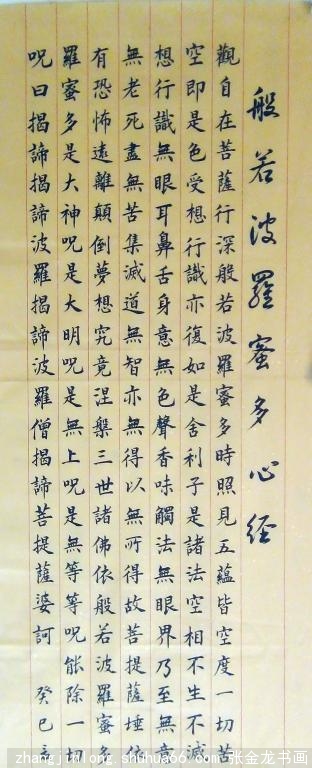 般若波羅蜜多心经
觀自在菩薩行深般若波羅蜜多時照見五蘊皆空度一切苦
空即是色受想行識亦復如是舍利子是諸法空相不生不滅
想行識無眼耳鼻舌身意無色聲香味觸法無眼界乃至無意
無老死盡無苦集滅道無智亦無得以無所得故菩提薩埵依
有恐怖遠離顛倒夢想究竟涅槃三世諸佛依般若波羅蜜多
羅蜜多是大神呪是大明呪是無上呪是無等等呪能除一切
呪曰揭諦揭諦波羅揭諦波羅僧揭諦菩提薩婆訶 癸巳
张金龙书画